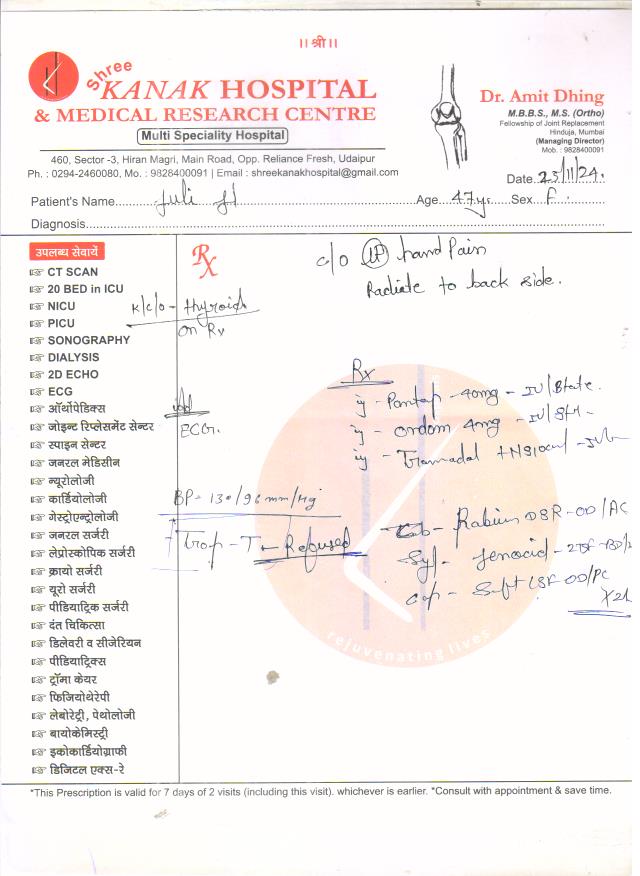 ॥ श्री ॥
Shree
KANAK HOSPITAL
& MEDICAL RESEARCH CENTRE
Multi Speciality Hospital
460, Sector -3, Hiran Magri, Main Road, Opp. Reliance Fresh, Udaipur
Ph. : 0294-2460080, Mo. : 9828400091 | Email : shreekanakhospital@gmail.com
Dr. Amit Dhing
M.B.B.S., M.S. (Ortho)
Fellowship of Joint Replacement
Hinduja, Mumbai
(Managing Director)
Mob. : 9828400091
Date 25/11/24.
Patient's Name Juli Age 47 yr Sex F.
Diagnosis
उपलब्ध सेवायें
CT SCAN
20 BED in ICU
NICU
PICU
SONOGRAPHY
DIALYSIS
2D ECHO
ECG
ऑर्थोपेडिक्स
जोइन्ट रिप्लेसमेंट सेन्टर
स्पाइन सेन्टर
जनरल मेडिसीन
न्यूरोलोजी
कार्डियोलोजी
गेस्ट्रोएन्ट्रोलोजी
जनरल सर्जरी
लेप्रोस्कोपिक सर्जरी
क्रायो सर्जरी
यूरो सर्जरी
पीडियाट्रिक सर्जरी
दंत चिकित्सा
डिलेवरी व सीजेरियन
पीडियाट्रिक्स
ट्रॉमा केयर
फिजियोथेरेपी
लेबोरेट्री, पेथोलोजी
बायोकेमिस्ट्री
इकोकार्डियोग्राफी
डिजिटल एक्स-रे
Rx
c/o hand Pain
Radiate to back side.
K/c/o - thyroid
on Rx
ECG.
BP = 130/96 mm/Hg
Trop - T ← Refused
Rx
Pantop - 40mg - IV/State.
Ondom 4mg - IV/
Tramadol + NS100ml -
Rabium DSR - OD/AC
Syp -
Cap - LSF OD/PC
rejuvenating lives
*This Prescription is valid for 7 days of 2 visits (including this visit). whichever is earlier. *Consult with appointment & save time.